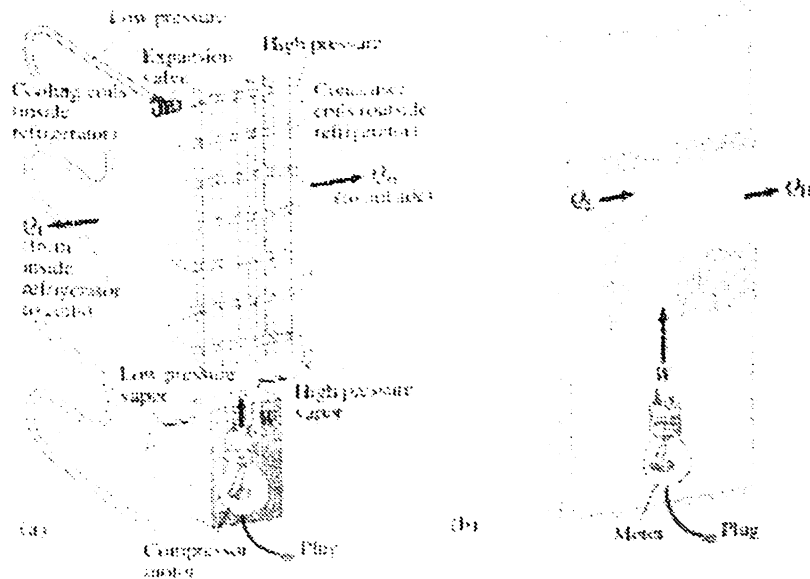 Low pressure
High pressure
Expansion
valve
Cooling coils
(inside
refrigerator)
Condenser
coils (outside
refrigerator)
Q_H
(to outside)
Q_L
(from
inside
refrigerator
to coils)
Low pressure
vapor
High pressure
vapor
W
(a)
Compressor
motor
Plug
Q_L
Q_H
W
(b)
Motor
Plug